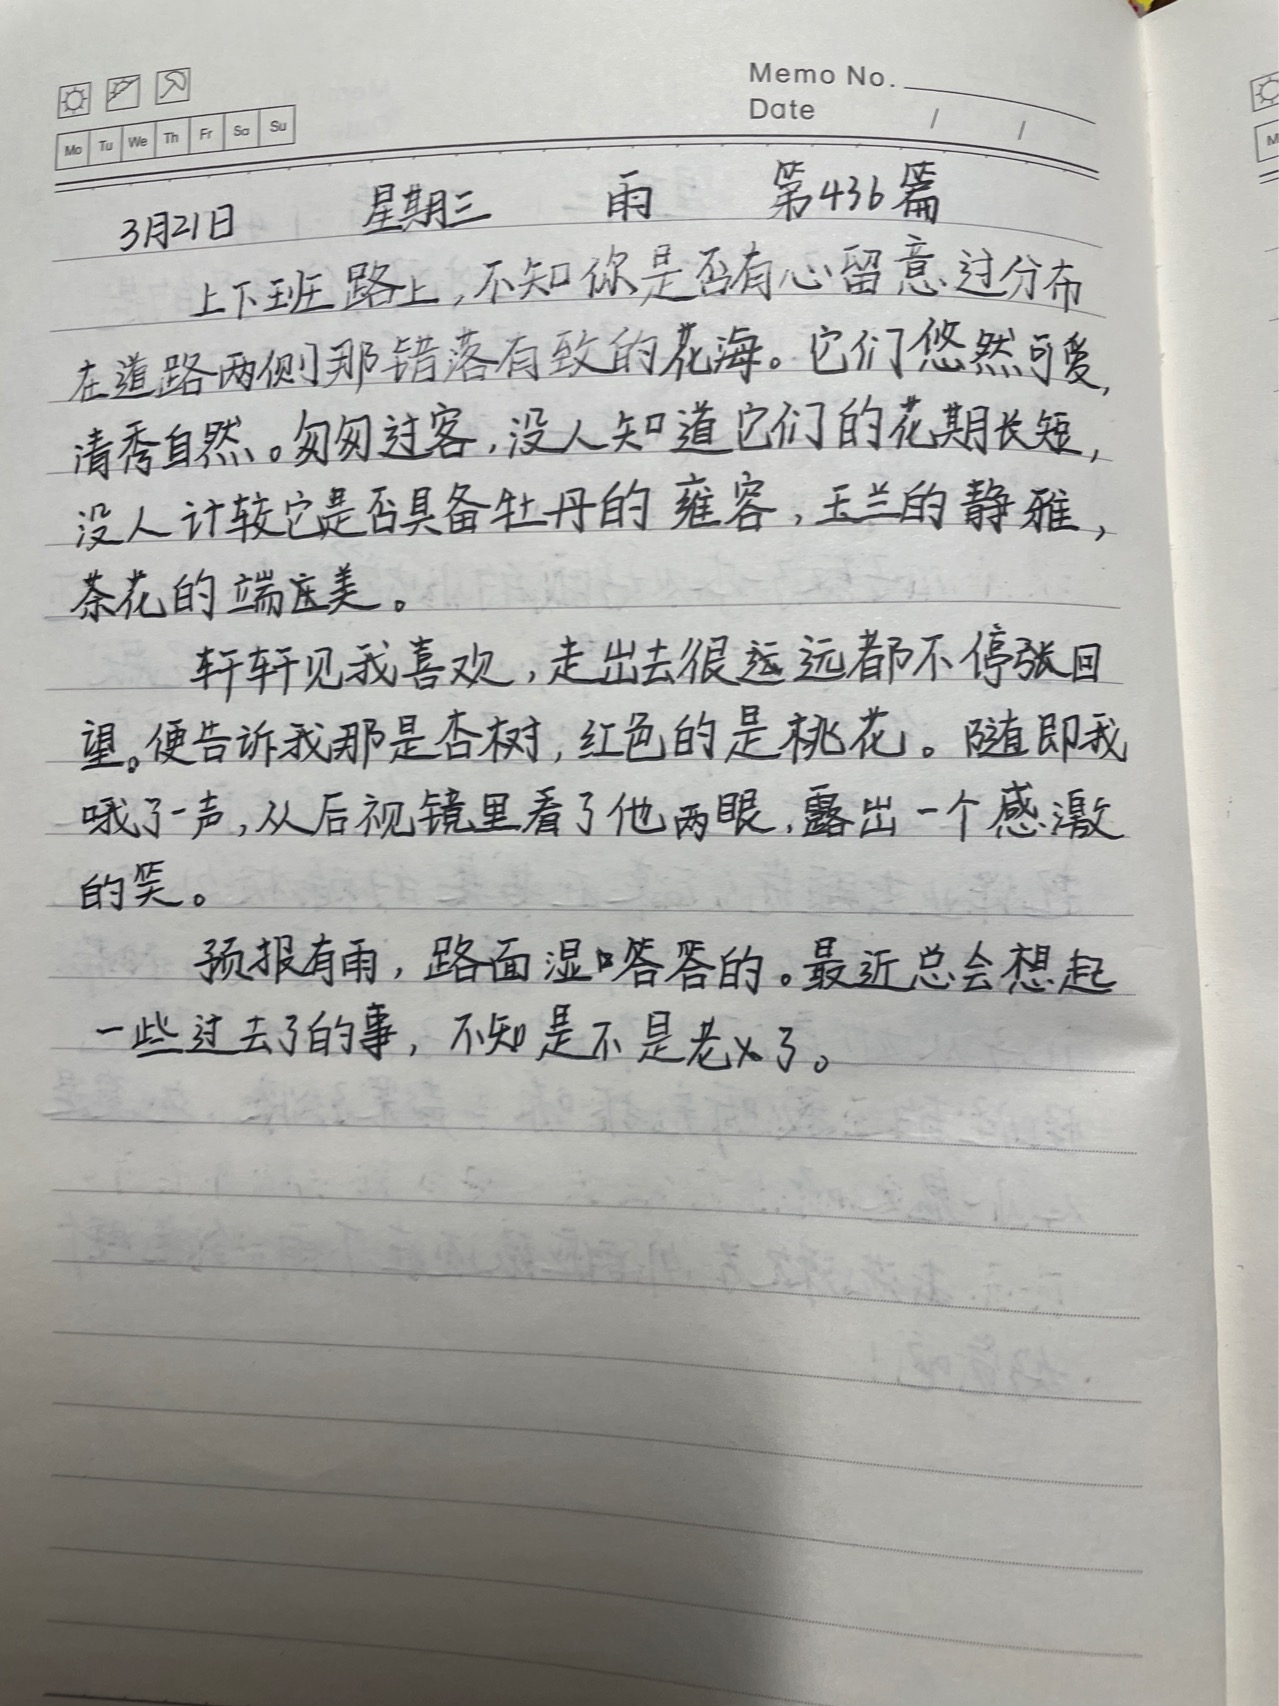 Memo No.
Date / /
Mo Tu We Th Fr Sa Su
3月21日 星期三 雨 第436篇
上下班路上,不知你是否有心留意过分布
在道路两侧那错落有致的花海。它们悠然可爱,
清秀自然。匆匆过客,没人知道它们的花期长短,
没人计较它是否具备牡丹的雍容,玉兰的静雅,
茶花的端庄美。
轩轩见我喜欢,走出去很远远都不停张回
望。便告诉我那是杏树,红色的是桃花。随即我
哦了一声,从后视镜里看了他两眼,露出一个感激
的笑。
预报有雨,路面湿嗒答的。最近总会想起
一些过去了的事,不知是不是老了。